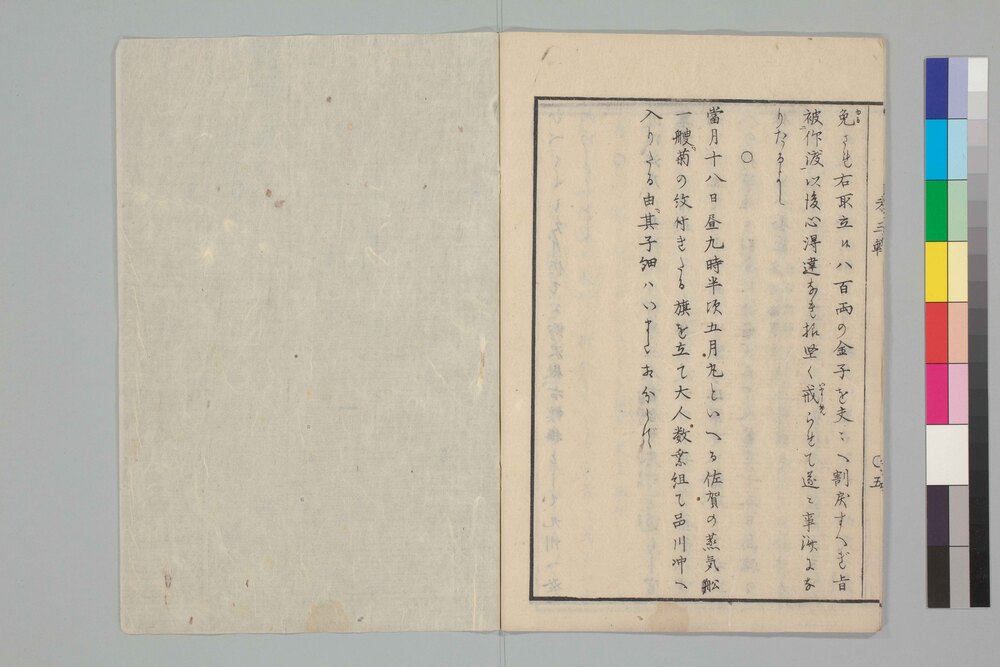 免さ れ右取立候八百両の金子を夫々へ割戻すべき旨
被仰渡以後心得違なき様堅く戒られて遂に事済になりたるよし
○
當月十八日昼九時半頃五月丸といへる佐賀の蒸気舩
一艘菊の紋付きたる旗を立て大人数乗組て品川沖へ
入りたる由其子細ハいまだ相分らず